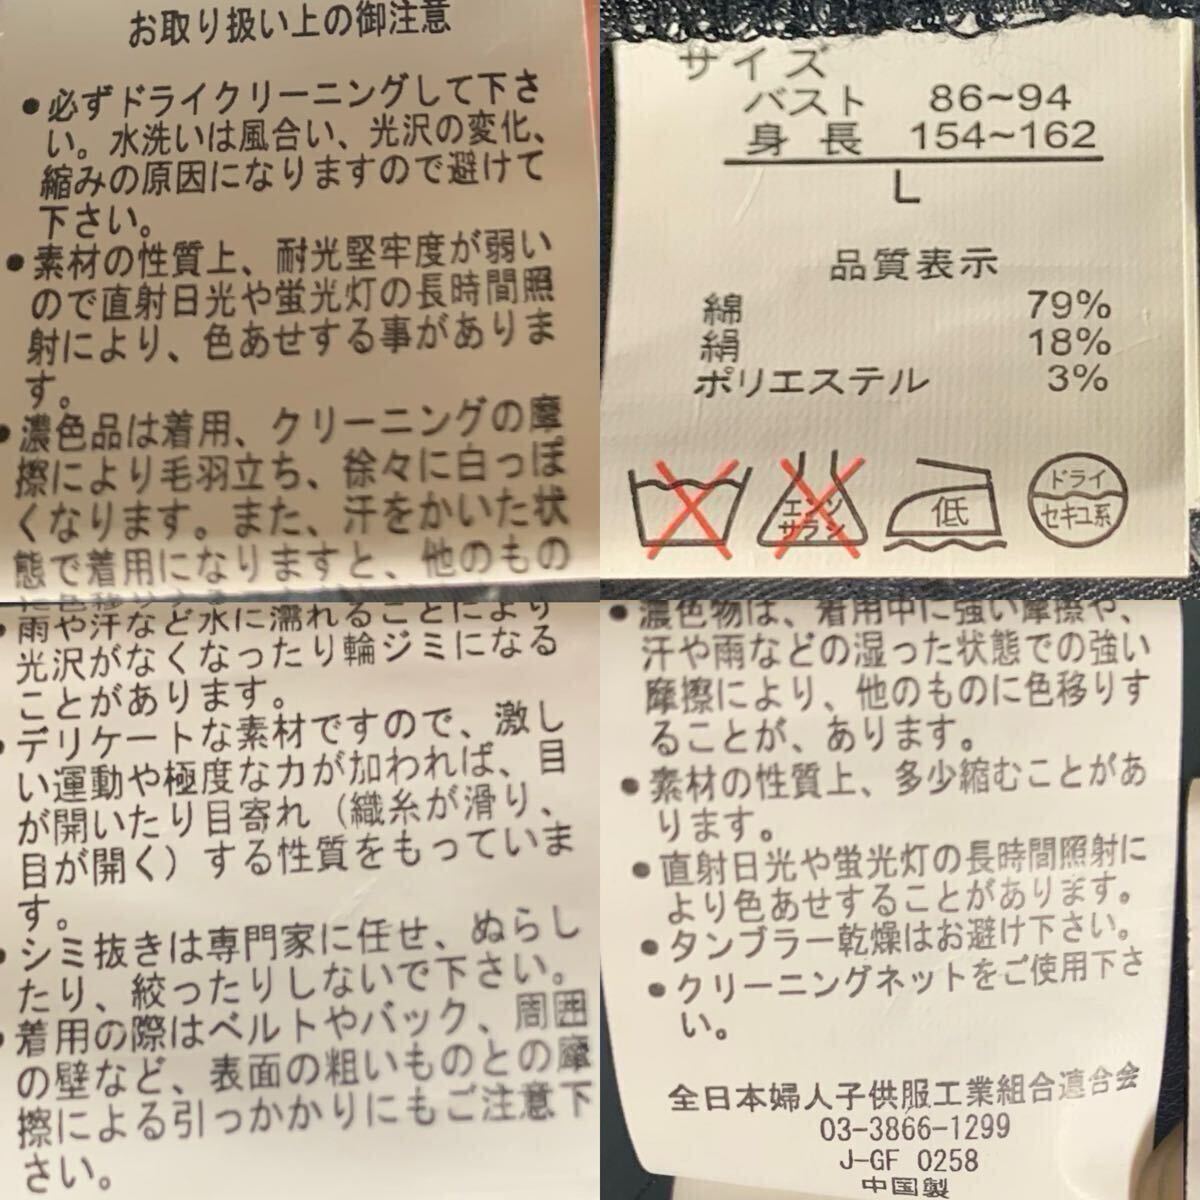 お取り扱い上の御注意
●必ずドライクリーニングして下さ
い。水洗いは風合い、光沢の変化、
縮みの原因になりますので避けて
下さい。
●素材の性質上、耐光堅牢度が弱い
ので直射日光や蛍光灯の長時間照
射により、色あせする事がありま
す。
●濃色品は着用、クリーニングの摩
擦により毛羽立ち、徐々に白っぽ
くなります。また、汗をかいた状
態で着用になりますと、他のもの
サイズ
バスト 86~94
身長 154~162
L
品質表示
綿 79%
絹 18%
ポリエステル 3%
エンソ
サラシ
低
ドライ
セキユ系
・雨や汗など水に濡れることにより
光沢がなくなったり輪ジミになる
ことがあります。
・デリケートな素材ですので、激し
い運動や極度な力が加われば、目
が開いたり目寄れ（織糸が滑り、
目が開く）する性質をもっていま
す。
・シミ抜きは専門家に任せ、ぬらし
たり、絞ったりしないで下さい。
・着用の際はベルトやバック、周囲
の壁など、表面の粗いものとの摩
擦による引っかかりにもご注意下
さい。
●濃色物は、着用中に強い摩擦や、
汗や雨などの湿った状態での強い
摩擦により、他のものに色移りす
ることが、あります。
●素材の性質上、多少縮むことがあ
ります。
●直射日光や蛍光灯の長時間照射に
より色あせすることがあります。
●タンブラー乾燥はお避け下さい。
●クリーニングネットをご使用下さ
い。
全日本婦人子供服工業組合連合会
03-3866-1299
J-GF 0258
中国製